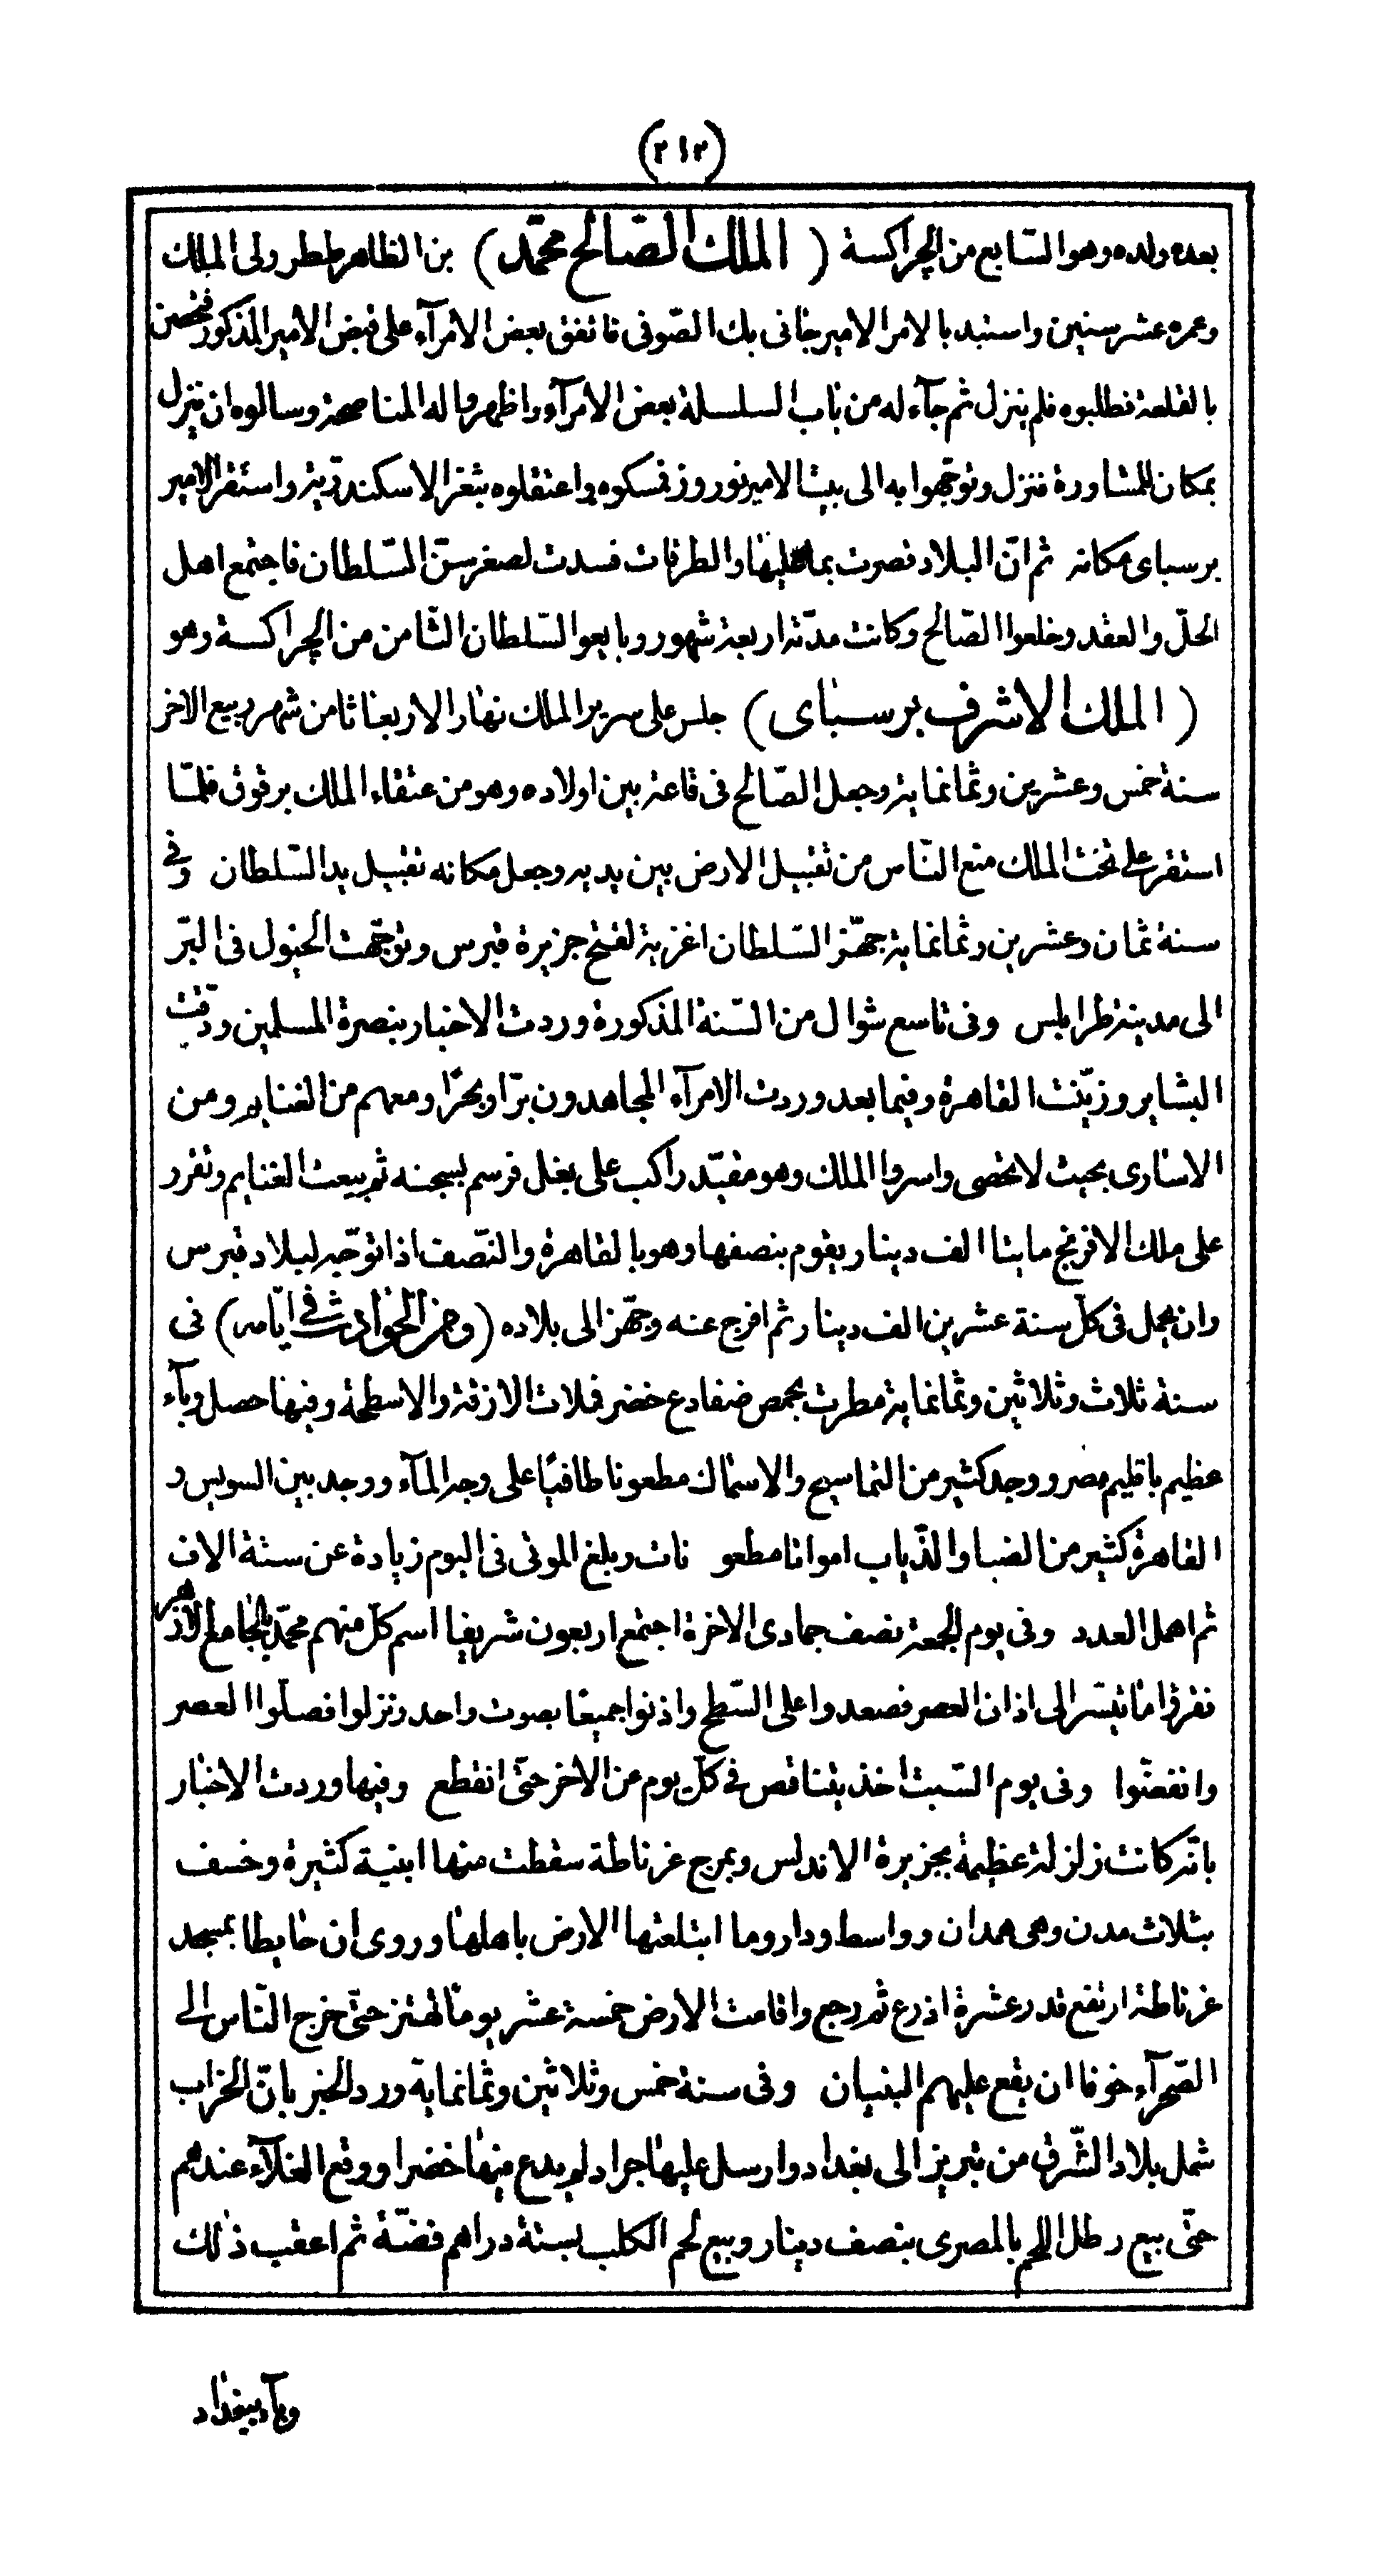 (٢١٢)
بعده ولده وهو السّابع من الچراكسة ( الملك الصّالح محمّد ) بن الظاهر ططر ولى الملك
وعمره عشر سنين واستبد بالامر الامير جانى بك الصّوفى فاتفق بعض الامرآء على قبض الامير المذكور فتحصن
بالقلعة فطلبوه فلم ينزل ثم جآء له من باب السلسلة بعض الامرآء واظهروا له المناصحة وسالوه ان ينزل
بمكان للمشاورة فنزل وتوجّهوا به الى بيت الامير نوروز فمسكوه واعتقلوه بثغر الاسكندريّة واستقر الامير
برسباى مكانه ثم انّ البلاد قصرت بما عليها والطرقات فسدت لصغر سنّ السّلطان فاجتمع اهل
الحلّ والعقد وخلعوا الصّالح وكانت مدّته اربعة شهور وبايعوا السّلطان الثّامن من الچراكسة وهو
( الملك الاشرف برسباى ) جلس على سرير الملك نهار الاربعا ثامن شهر ربيع الاخر
سنة خمس وعشرين وثمانماية وجعل الصّالح فى قاعة بين اولاده وهو من عتقاء الملك برقوق فلمّا
استقر على تخت الملك منع النّاس من تقبيل الارض بين يديه وجعل مكانه تقبيل يد السّلطان وفى
سنة ثمان وعشرين وثمانماية جهّز السّلطان اغزية لفتح جزيرة قبرس وتوجّهت الخيول فى البرّ
الى مدينة طرابلس وفى تاسع شوال من السّنة المذكورة وردت الاخبار بنصرة المسلمين ودقّت
البشاير وزيّنت القاهرة وفيما بعد وردت الامرآء المجاهدون برّا وبحرًا ومعهم من الغنايم ومن
الاسارى بحيث لا تحصى واسروا الملك وهو مقيّد راكب على بغل فرسم بسجنه ثم بيعت الغنايم وتقرر
على ملك الافرنج مايتا الف دينار يقوم بنصفها وهو بالقاهرة والنّصف اذا توجّه لبلاد قبرس
وان يحمل فى كلّ سنة عشرين الف دينار ثم افرج عنه وجهّز الى بلاده (ومن الحوادث فى ايّامه) فى
سنة ثلاث وثلاثين وثمانماية مطرت بحمص ضفادع خضر فملات الازقة والاسطحة وفيها حصل وبآء
عظيم باقليم مصر ووجد كثير من التماسيح والاسماك مطعونا طافيًا على وجه المآء ووجد بين السويس و
القاهرة كثير من الضبا والذّياب امواتا مطعو نات وبلغ الموتى فى اليوم زيادة عن ستة الاف
ثم اهمل العدد وفى يوم الجمعة نصف جمادى الاخرة اجتمع اربعون شريفا اسم كلّ منهم محمّد بالجامع الازهر
فقرؤا ما تيسّر الى اذان العصر فصعدوا على السّطح واذنوا جميعًا بصوت واحد ونزلوا فصلّوا العصر
وانفضّوا وفى يوم السّبت اخذ يتناقص فى كلّ يوم عن الاخر حتّى انقطع وفيها وردت الاخبار
بانّه كانت زلزلة عظيمة بجزيرة الاندلس وبمرج غرناطة سقطت منها ابنية كثيرة وخسف
بثلاث مدن وهى همدان وواسط وداروما ابتلعتها الارض باهلها وروى ان حايطا بمسجد
غرناطة ارتفع قدر عشرة اذرع ثم رجع واقامت الارض خمسة عشر يومًا تهتز حتّى خرج النّاس الى
الصّحرآء خوفا ان يقع عليهم البنيان وفى سنة خمس وثلاثين وثمانماية ورد الخبر بانّ الخراب
شمل بلاد الشّرق من تبريز الى بغداد وارسل عليها جراد لم يدع منها خضرا ووقع الغلآء عندهم
حتّى بيع رطل اللحم بالمصرى بنصف دينار وبيع لحم الكلب بستة دراهم فضّة ثم اعقب ذلك
وبآء ببغداد